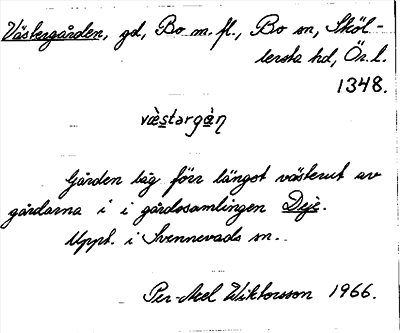 Västergården, gd, Bo m.fl., Bo sn, Sköl-
lersta hd, Ör. l.
1348.
væ̀stərgàn
Gården låg förr längst västerut av
gårdarna i i gårdssamlingen Deje.
Uppt. i Svennevads sn.
Per-Axel Wiktorsson 1966.